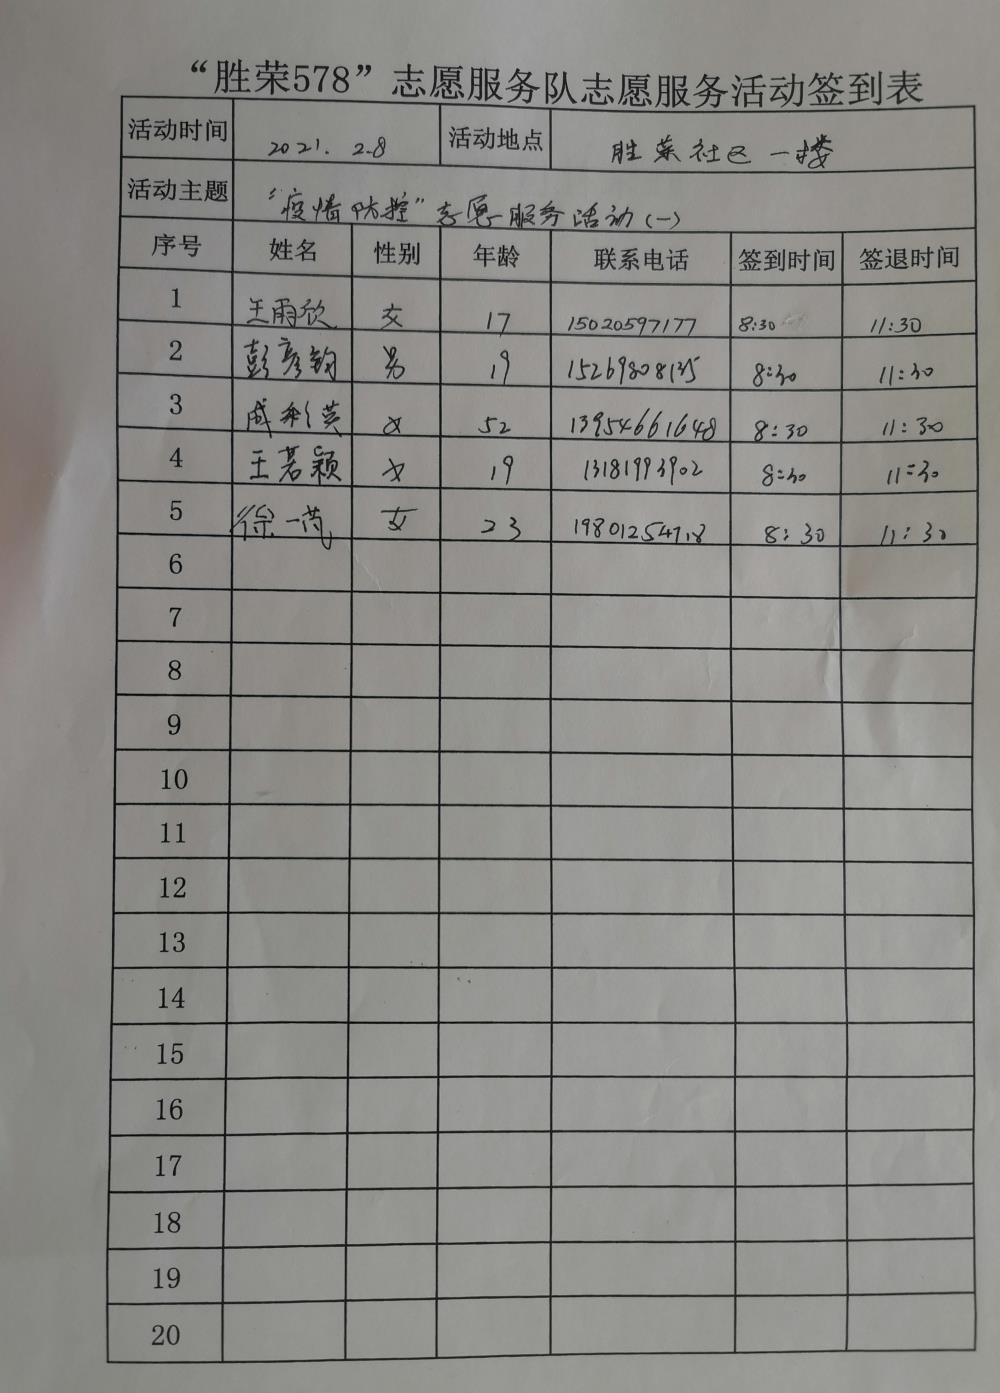 “胜荣578”志愿服务队志愿服务活动签到表
活动时间 2021. 2.8 活动地点 胜荣社区一楼
活动主题 “疫情防控”志愿服务活动(一)
序号 姓名 性别 年龄 联系电话 签到时间 签退时间
1 王雨欣 女 17 15020597177 8:30 11:30
2 彭彦钧 男 19 15269808135 8:30 11:30
3 成彩英 女 52 13954661648 8:30 11:30
4 王若颖 女 19 13181993902 8:30 11:30
5 徐一芃 女 23 8:30 11:30
6
7
8
9
10
11
12
13
14
15
16
17
18
19
20